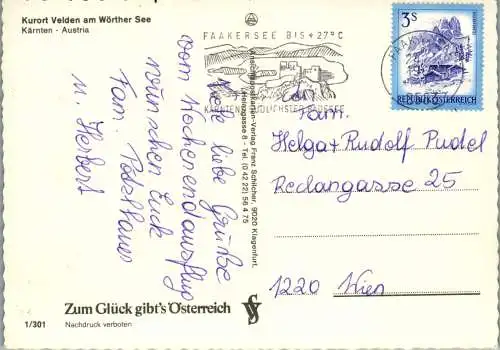 Kurort Velden am Wörther See
Kärnten - Austria
FAAKERSEE BIS +27°C
KÄRNTENS SÜDLICHSTER BADESEE
3 S
REPUBLIK ÖSTERREICH
Viele liebe Grüße
vom Wochenendausflug
wünschen Euch
Fam.
u. Herbert
Ansichtskarten-Verlag Franz Schilcher, 9020 Klagenfurt,
gasse 8 - Tel. (0 42 22) 56 4 75
Fam.
Helga + Rudolf Pudel
Redangasse 25
1220 Wien
Zum Glück gibt's Österreich
1/301
Nachdruck verboten